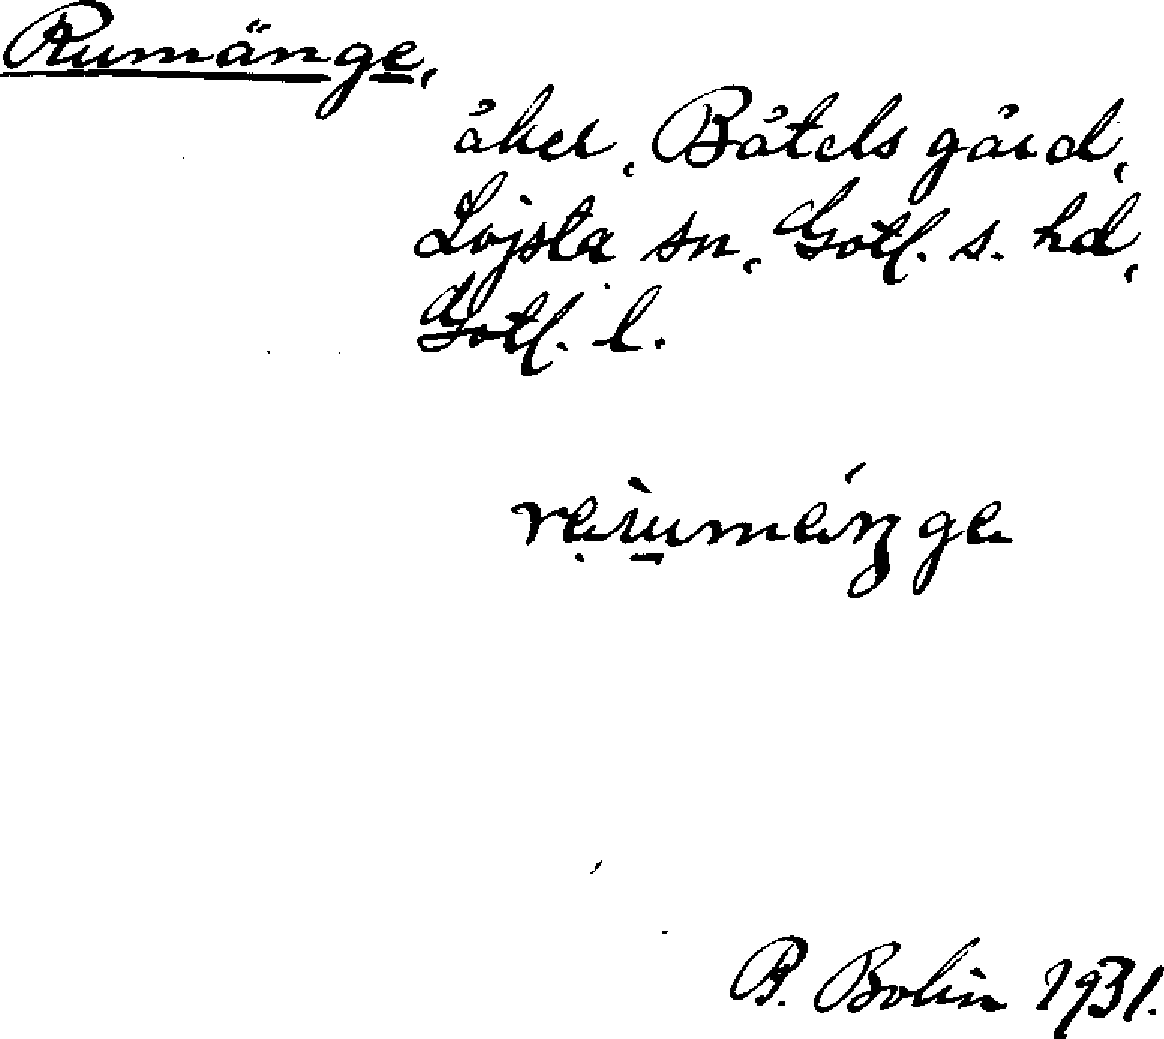 Rumänge,
åker, Båtels gård,
Lojsta sn, Gotl. s. hd,
Gotl. l.
B. Bolin 1931.